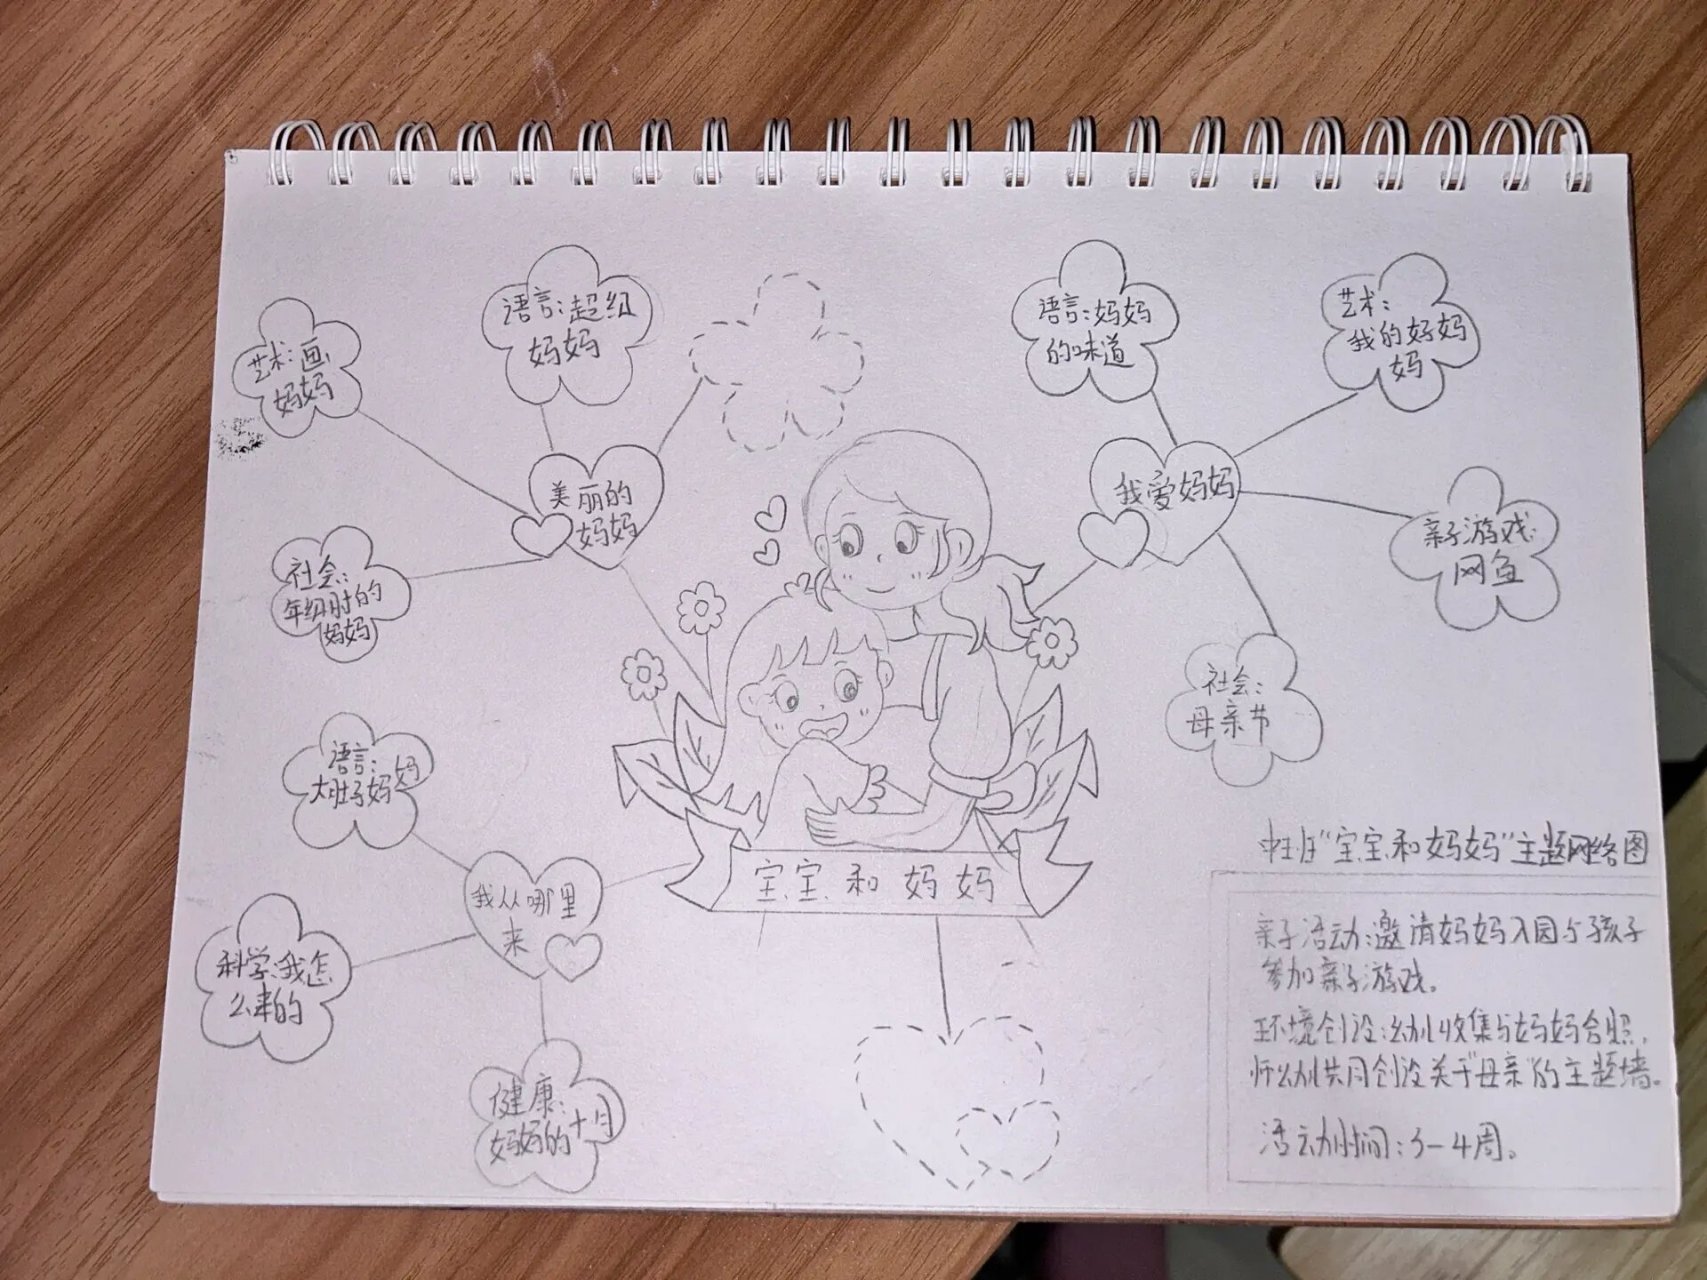 艺术:画
妈妈
语言:超级
妈妈
美丽的
妈妈
社会:
年轻时的
妈妈
语言:妈妈
的味道
艺术:
我的好妈
妈
我爱妈妈
亲子游戏:
网鱼
社会:
母亲节
语言:
大肚子妈妈
我从哪里
来
科学:我怎
么来的
健康:
妈妈的十月
宝宝和妈妈
中班“宝宝和妈妈”主题网络图
亲子活动:邀请妈妈入园与孩子
参加亲子游戏。
环境创设:幼儿收集与妈妈合照,
师幼共同创设关于“母亲”的主题墙。
活动时间:3-4周。